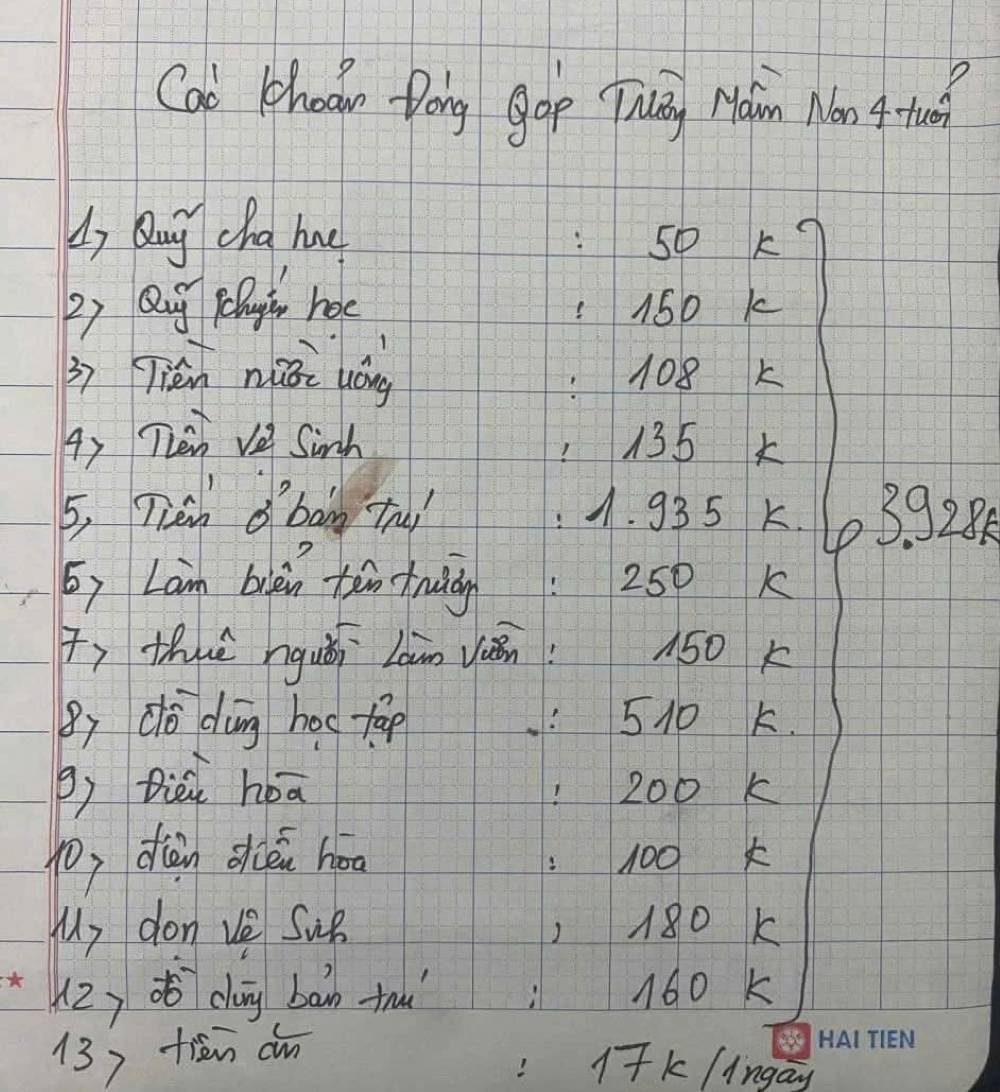 Các khoản Đóng Góp Trường Mầm Non 4 tuổi
1, Quỹ cha mẹ : 50 K
2, Quỹ khuyến học : 150 K
3, Tiền nước uống : 108 K
4, Tiền Vệ Sinh : 135 K
5, Tiền ở bán trú : 1.935 K.
6, Làm biển tên trường : 250 K
7, thuê người làm vườn : 150 K
8, đồ dùng học tập : 510 K.
9, Điều hòa : 200 K
10, điện điều hòa : 100 K
11, dọn vệ sinh : 180 K
12, đồ dùng bán trú : 160 K
3.928K
13, tiền ăn : 17K/1ngày
HAI TIEN